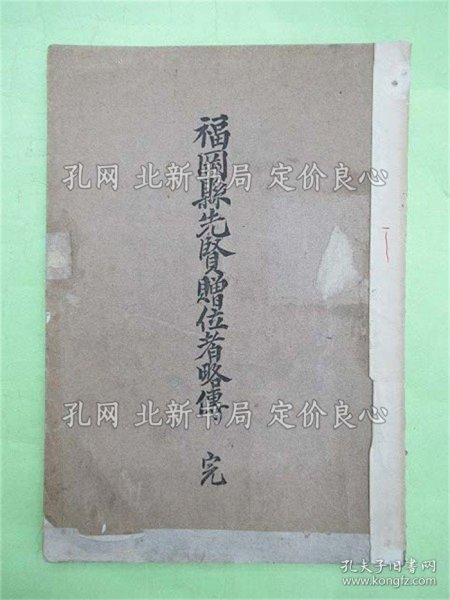 福岡縣先賢贈位者略傳 完
孔网 北新书局 定价良心
孔网 北新书局 定价良心
孔夫子旧书网
www.kongfz.com